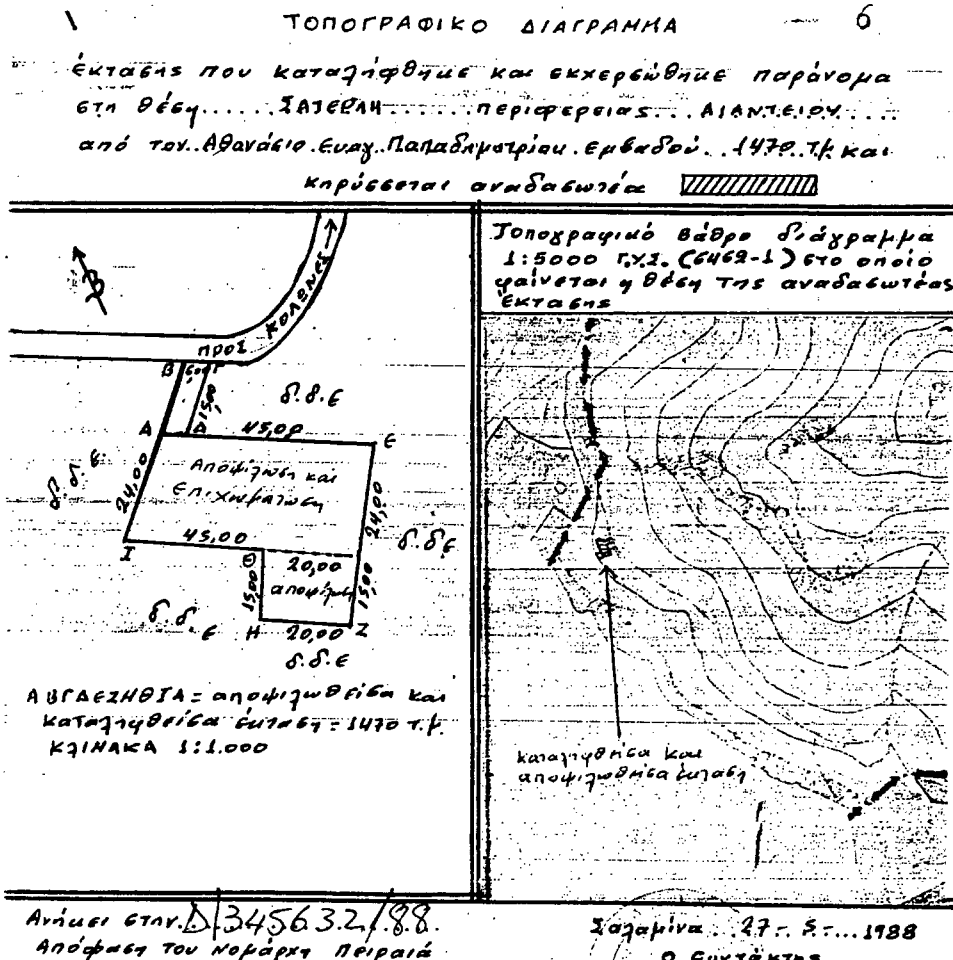 ΤΟΠΟΓΡΑΦΙΚΟ ΔΙΑΓΡΑΜΜΑ 6
έκτασης που καταλήφθηκε και εκχερσώθηκε παράνομα
στη θέση...... ΣΑΤΕΡΛΗ...... περιφερείας... ΑΙΑΝΤΕΙΟΥ....
από τον..Αθανάσιο.Ευαγ.Παπαδημητρίου.εμβαδού..1470..τ.μ. και
κηρύσσεται αναδασωτέα
Β
ΠΡΟΣ ΚΟΛΩΝΕΣ
Β 6,00 Γ
15,00
δ.δ.ε
Α Δ 45,00 Ε
δ.δ.ε.
24,00
Αποψίλωση και
επιχωμάτωση
24,00
δ.δ.ε
Ι 45,00 Θ 20,00
15,00 αποψίλωση 15,00
δ.δ.ε
Η 20,00 Ζ
δ.δ.ε
ΑΒΓΔΕΖΗΘΙΑ = αποψιλωθείσα και
καταληφθείσα έκταση = 1470 τ.μ.
ΚΛΙΜΑΚΑ 1:1.000
Τοπογραφικό βάθρο διάγραμμα
1:5000 Γ.Υ.Σ. (6462-1) στο οποίο
φαίνεται η θέση της αναδασωτέας
έκτασης
καταληφθείσα και
αποψιλωθείσα έκταση
Ανήκει στην. Δ/345632/88.
Απόφαση του Νομάρχη Πειραιά
Σαλαμίνα...27-.5-...1988
Ο Συντάκτης